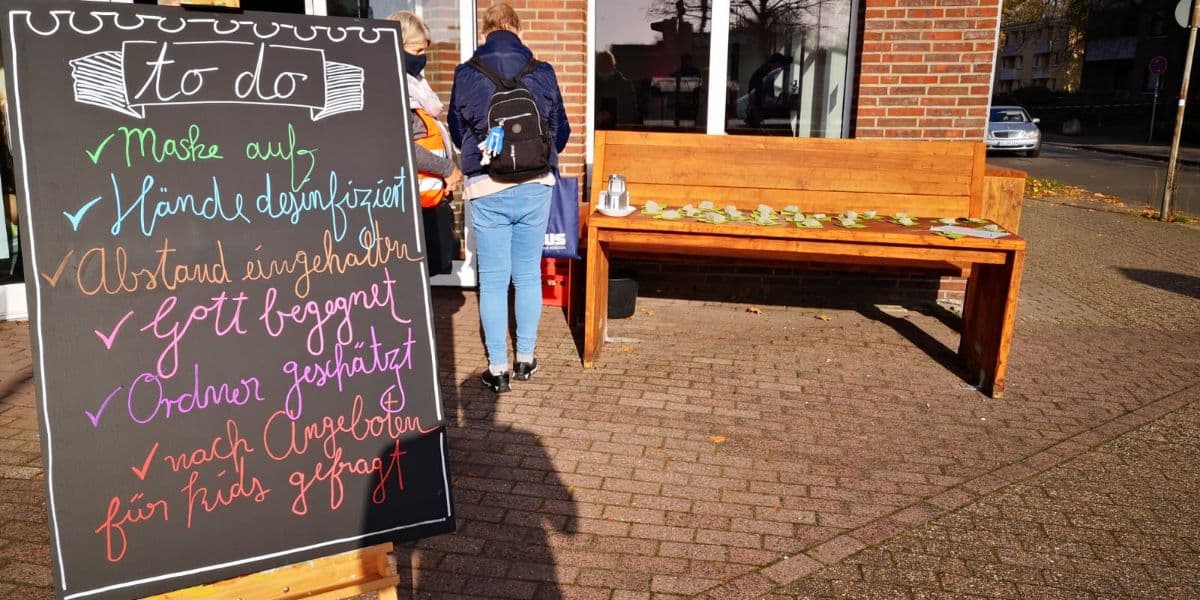 to do
✓ Maske auf
✓ Hände desinfiziert
✓ Abstand eingehalten
✓ Gott begegnet
✓ Ordner geschätzt
✓ nach Angeboten
für kids gefragt
US